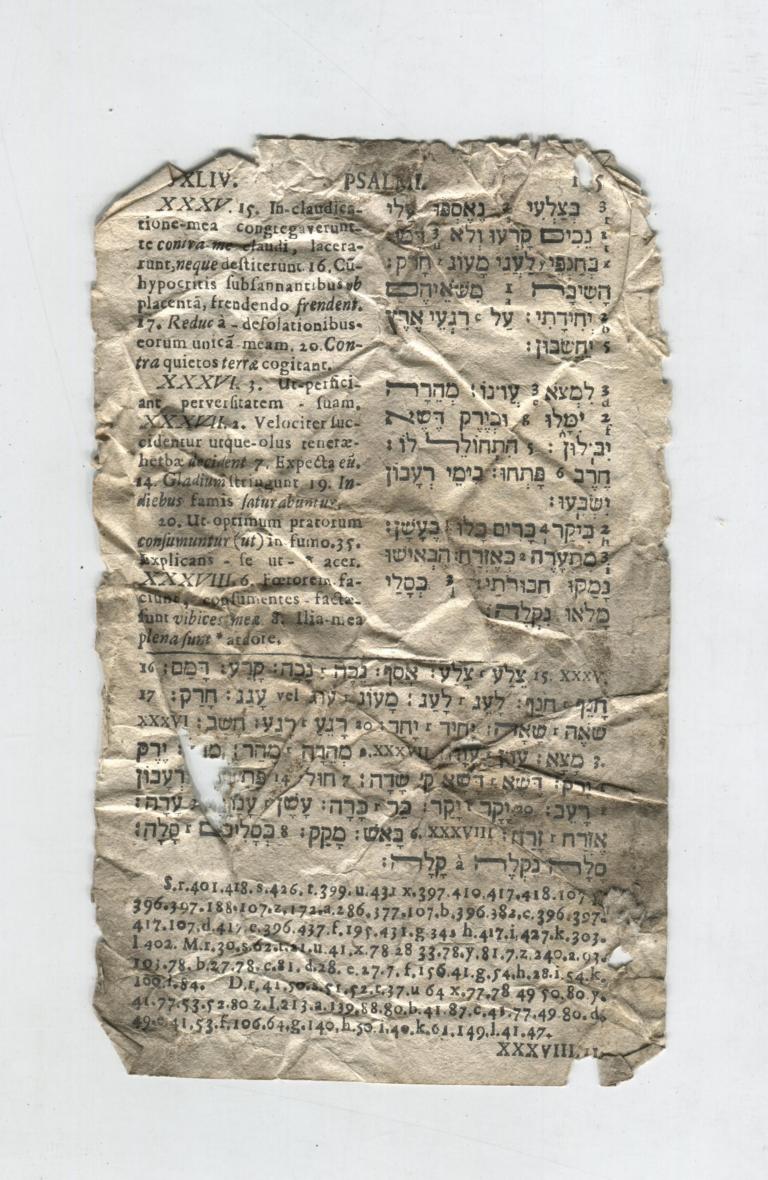 XLIV. PSALMI.
XXXV. 15. In-claudica-
tione-mea congregaverunt-
te contra-me claudi, lacera-
runt, neque destiterunt. 16. Cū-
hypocritis subsannantibus ob
placentā, frendendo frendent.
17. Reduc à - desolationibus-
eorum unicā-meam. 20. Con-
tra quietos terræ cogitant.
XXXVI. 3. Ut-perfici-
ant perversitatem - suam.
XXXVII. 2. Velociter suc-
cidentur utque-olus teneræ-
herbæ decident 7. Expecta eū.
14. Gladium stringunt 19. In-
diebus famis saturabuntur.
20. Ut-optimum pratorum
consumuntur (ut) in fumo. 35.
Explicans - se ut - * acer.
XXXVIII. 6. Fœtorem fa-
ciunt, consumentes - factæ-
sunt vibices meæ 8. Ilia-mea
plena sunt * ardore.
בְצַלְעִי נֶאֶסְפוּ עָלַי
נֵכִים קָרְעוּ וְלֹא
בְּחַנְפֵי לַעֲגֵי מָעוֹג חָרֹק:
הָשִׁיבָה מִשֹּׁאֵיהֶם
יְחִידָתִי: עַל רִגְעֵי אֶרֶץ
יַחֲשֹׁבוּן:
לִמְצֹא עֲוֹנוֹ: מְהֵרָה
יִמָּלוּ וּכְיֶרֶק דֶּשֶׁא
יִבּוֹלוּן: הִתְחוֹלֵל לוֹ:
חֶרֶב פָּתְחוּ: בִּימֵי רְעָבוֹן
יִשְׂבָּעוּ:
כִּיקַר כָּרִים כָּלוּ בֶעָשָׁן:
מִתְעָרֶה כְּאֶזְרָח: הִבְאִישׁוּ
נָמַקּוּ חַבּוּרֹתָי: כְסָלַי
מָלְאוּ נִקְלֶה:
XXXV. 15. צֶלַע צָלַע: אָסַף: נָכֶה נָכָה: קָרַע: דָּמַם: 16
חָנֵף חָנַף: לָעֵג לָעַג: מָעוֹג עוּג vel עָגַג: חָרַק: 17
שֹׁאָה שָׁאָה: יָחִיד יָחַד: 20 רָגֵעַ רָגַע: חָשַׁב: XXXVI
3. מָצָא: XXXVII. מְהֵרָה מָהַר: יֶרֶק
דֶּשֶׁא דָּשָׁא 7 חוּל: 14 רְעָבוֹן
רָעֵב: 20 יָקָר יָקַר: כַּר כָּרָה: עָשָׁן עָשַׁן עָרָה:
אֶזְרָח זָרַח: XXXVIII. 6. בָּאַשׁ: מָקַק: 8 כְּסָלִים סָלָה:
סָלָה נִקְלָה à קָלָה:
S. r. 401. 418. s. 426. t. 399. u. 431 x. 397. 410. 417. 418. 107
396. 397. 188. 107. z. 172. a. 286. 377. 107. b. 396. 382. c. 396. 397.
417. 107. d. 417. e. 396. 437. f. 195. 431. g. 342 h. 417. i. 427. k. 303.
l. 402. M. r. 30. s. 62. t. 21. u. 41. x. 78 28 33. 78. y. 81. 7. z. 240. a. 93.
103. 78. b. 27. 78. c. 81. d. 28. e. 27. 7. f. 156. 41. g. 54. h. 28. i. 54. k.
100. l. 84. D. r. 41. 50. s. 51. 52. t. 37. u 64 x. 77. 78 49 50. 80. y.
41. 77. 53. 52. 80 z. 1. 213. a. 139. 88. 80. b. 41. 87. c. 41. 77. 49 80. d.
49. e. 41. 53. f. 106. 64. g. 140. h. 50. i. 40. k. 61. 149. l. 41. 47.
XXXVIII. 11.